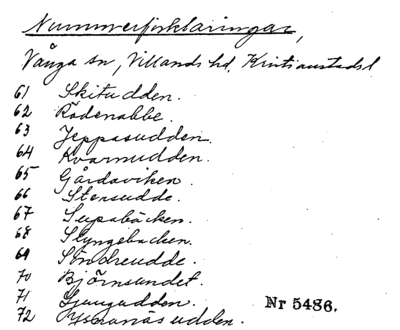 Nummerförklaringar,
Vånga sn, Villands hd, Kristianstads l.
61 Skitudden.
62 Rödenabbe.
63 Jeppasudden.
64 Kvarnudden.
65 Gårdaviken.
66 Stensudde.
67 Supabäcken.
68 Slyngebacken.
69 Söndreudde.
70 Björnsundet.
71 Ljungudden.
72 udden.
Nr 5486.